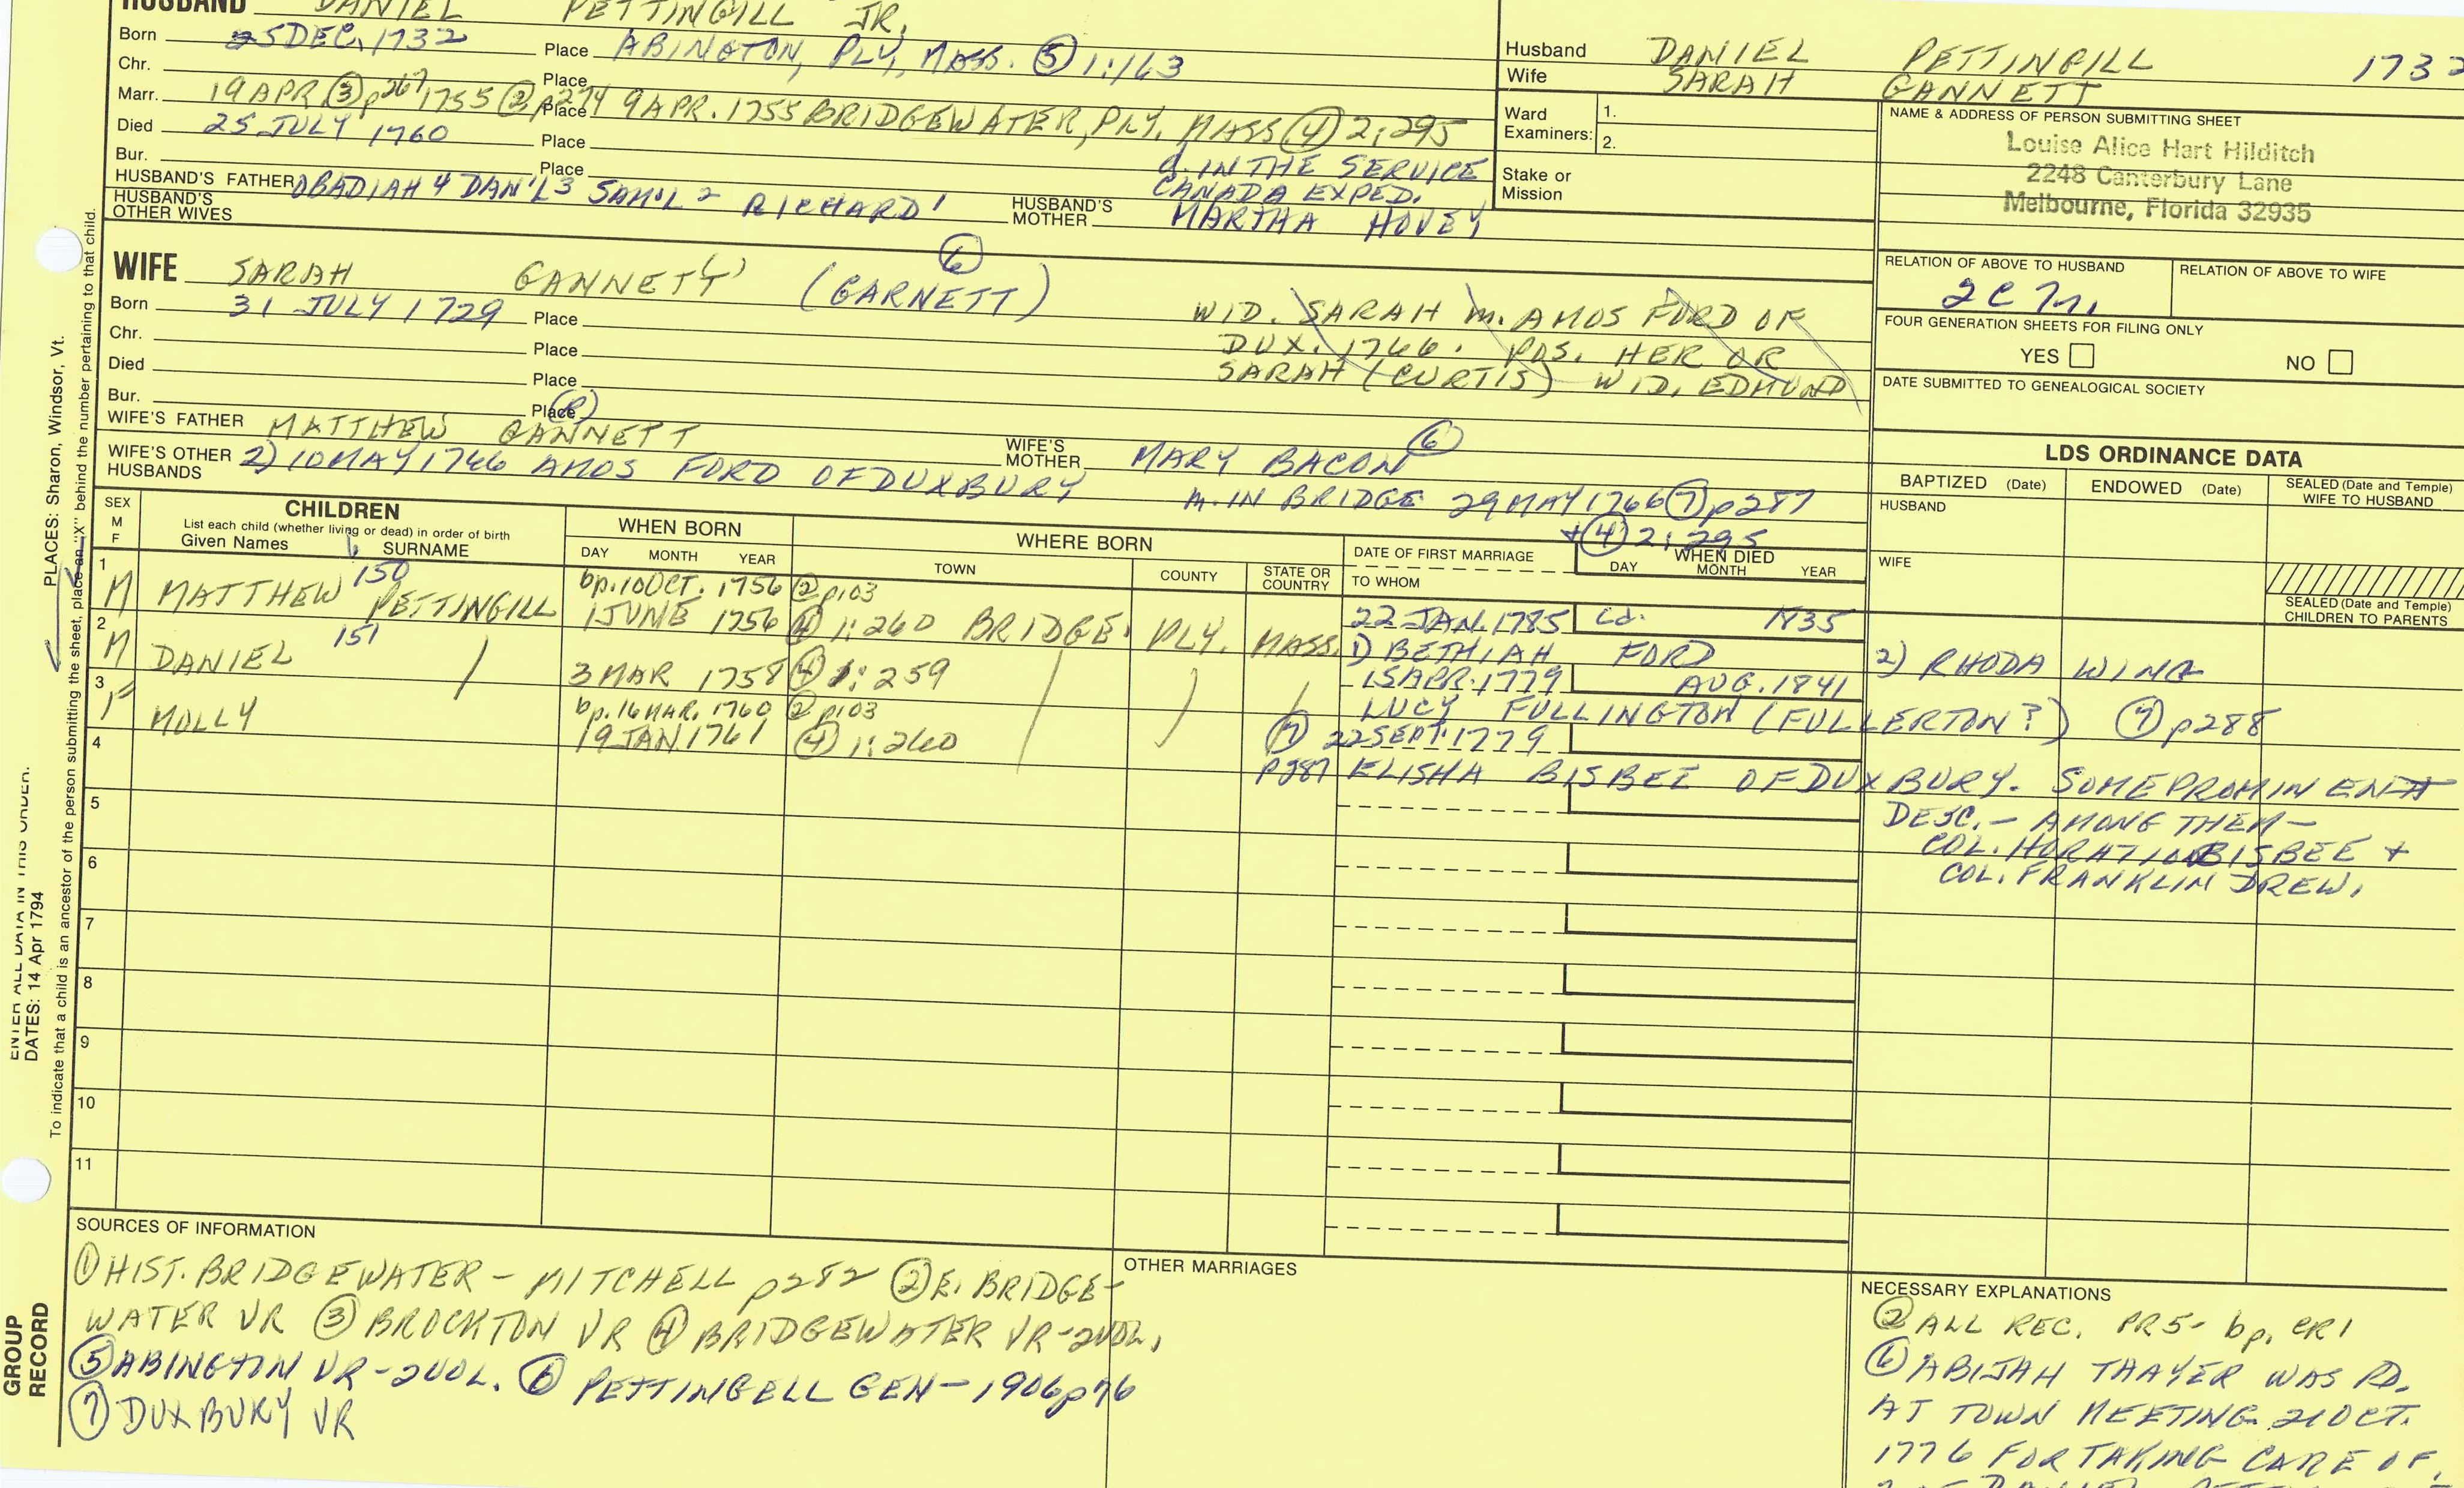 HUSBAND DANIEL PETTINGILL JR.
Born 25 DEC. 1732 Place ABINGTON, PLY, MASS. ⑤ 1:163
Chr. Place
Marr. 19 APR ③ p267 1755 ② p274 Place 9 APR. 1755 BRIDGEWATER, PLY. MASS ④ 2:295
Died 25 JULY 1760 Place
Bur. Place d. IN THE SERVICE
CANADA EXPED.
HUSBAND'S FATHER OBADIAH 4 DAN'L 3 SAM'L 2 RICHARD 1
HUSBAND'S MOTHER MARTHA HOVEY
HUSBAND'S OTHER WIVES
Husband DANIEL PETTINGILL 1732
Wife SARAH GANNETT
Ward Examiners: 1.
2.
Stake or Mission
NAME & ADDRESS OF PERSON SUBMITTING SHEET
Louise Alice Hart Hilditch
2248 Canterbury Lane
Melbourne, Florida 32935
RELATION OF ABOVE TO HUSBAND RELATION OF ABOVE TO WIFE
FOUR GENERATION SHEETS FOR FILING ONLY
YES NO
DATE SUBMITTED TO GENEALOGICAL SOCIETY
WIFE SARAH GANNETT (GARNETT) ⑥
Born 31 JULY 1729 Place
Chr. Place
Died Place
Bur. Place
WID. SARAH m. AMOS FORD OF
DUX. 1766. POS. HER OR
SARAH (CURTIS) WID. EDMUND
WIFE'S FATHER MATTHEW GANNETT
WIFE'S MOTHER MARY BACON ⑥
WIFE'S OTHER HUSBANDS 2) 10 MAY 1766 AMOS FORD OF DUXBURY
m. IN BRIDGE 29 MAY 1766 ⑦ p287
+ ④ 2:295
LDS ORDINANCE DATA
BAPTIZED (Date) ENDOWED (Date) SEALED (Date and Temple) WIFE TO HUSBAND
HUSBAND
WIFE
SEALED (Date and Temple) CHILDREN TO PARENTS
SEX M F
CHILDREN
List each child (whether living or dead) in order of birth
Given Names SURNAME
WHEN BORN
DAY MONTH YEAR
WHERE BORN
TOWN COUNTY STATE OR COUNTRY
DATE OF FIRST MARRIAGE
TO WHOM
WHEN DIED
DAY MONTH YEAR
1 M MATTHEW 150 PETTINGILL bp. 10 OCT. 1756 ② p103
1 JUNE 1756 ④ 1:260 BRIDGE. PLY. MASS.
22 JAN. 1785 Cd. 1835
1) BETHIAH FORD 2) RHODA WING
2 M DANIEL 151 3 MAR 1758 ④ 1:259
15 APR. 1779 AUG. 1841
LUCY FULLINGTON (FULLERTON?) ⑦ p288
3 F MOLLY bp. 16 MAR. 1760 ② p103
19 JAN. 1761 ④ 1:260
⑦ 22 SEPT. 1779
p287 ELISHA BISBEE OF DUXBURY. SOME PROMINENT
DESC. — AMONG THEM —
COL. HORATIO BISBEE +
COL. FRANKLIN DREW.
4
5
6
7
8
9
10
11
SOURCES OF INFORMATION
① HIST. BRIDGEWATER - MITCHELL p282 ② E. BRIDGE-
WATER VR ③ BROCKTON VR ④ BRIDGEWATER VR - 2 VOL.
⑤ ABINGTON VR - 2 VOL. ⑥ PETTINGELL GEN - 1906 p76
⑦ DUXBURY VR
OTHER MARRIAGES
NECESSARY EXPLANATIONS
② ALL REC. PR5 - bp. CR1
⑥ ABIJAH THAYER WAS PD.
AT TOWN MEETING 21 OCT.
1776 FOR TAKING CARE OF
PLACES: Sharon, Windsor, Vt.
To indicate that a child is an ancestor of the person submitting the sheet, place an "X" behind the number pertaining to that child.
ENTER ALL DATA IN THIS ORDER:
DATES: 14 Apr 1794
GROUP
RECORD